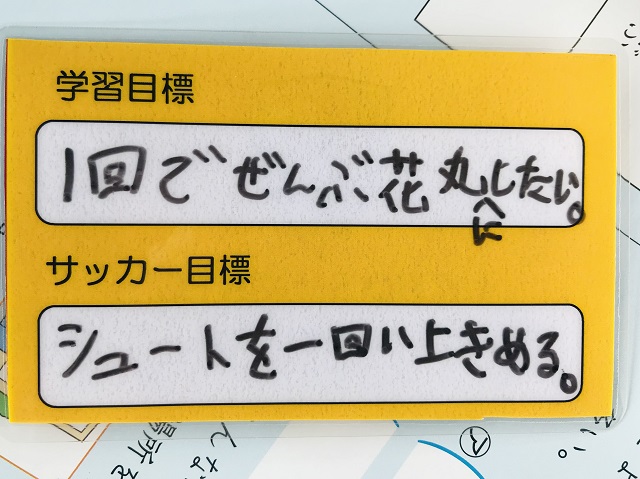 学習目標
1回でぜんぶ花丸にしたい。
サッカー目標
シュートを一回い上きめる。
場所を